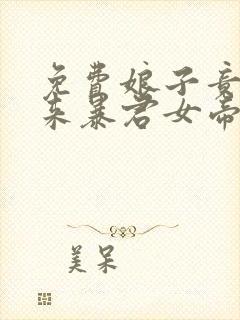 免费娘子竟
来暴君女帝
美呆